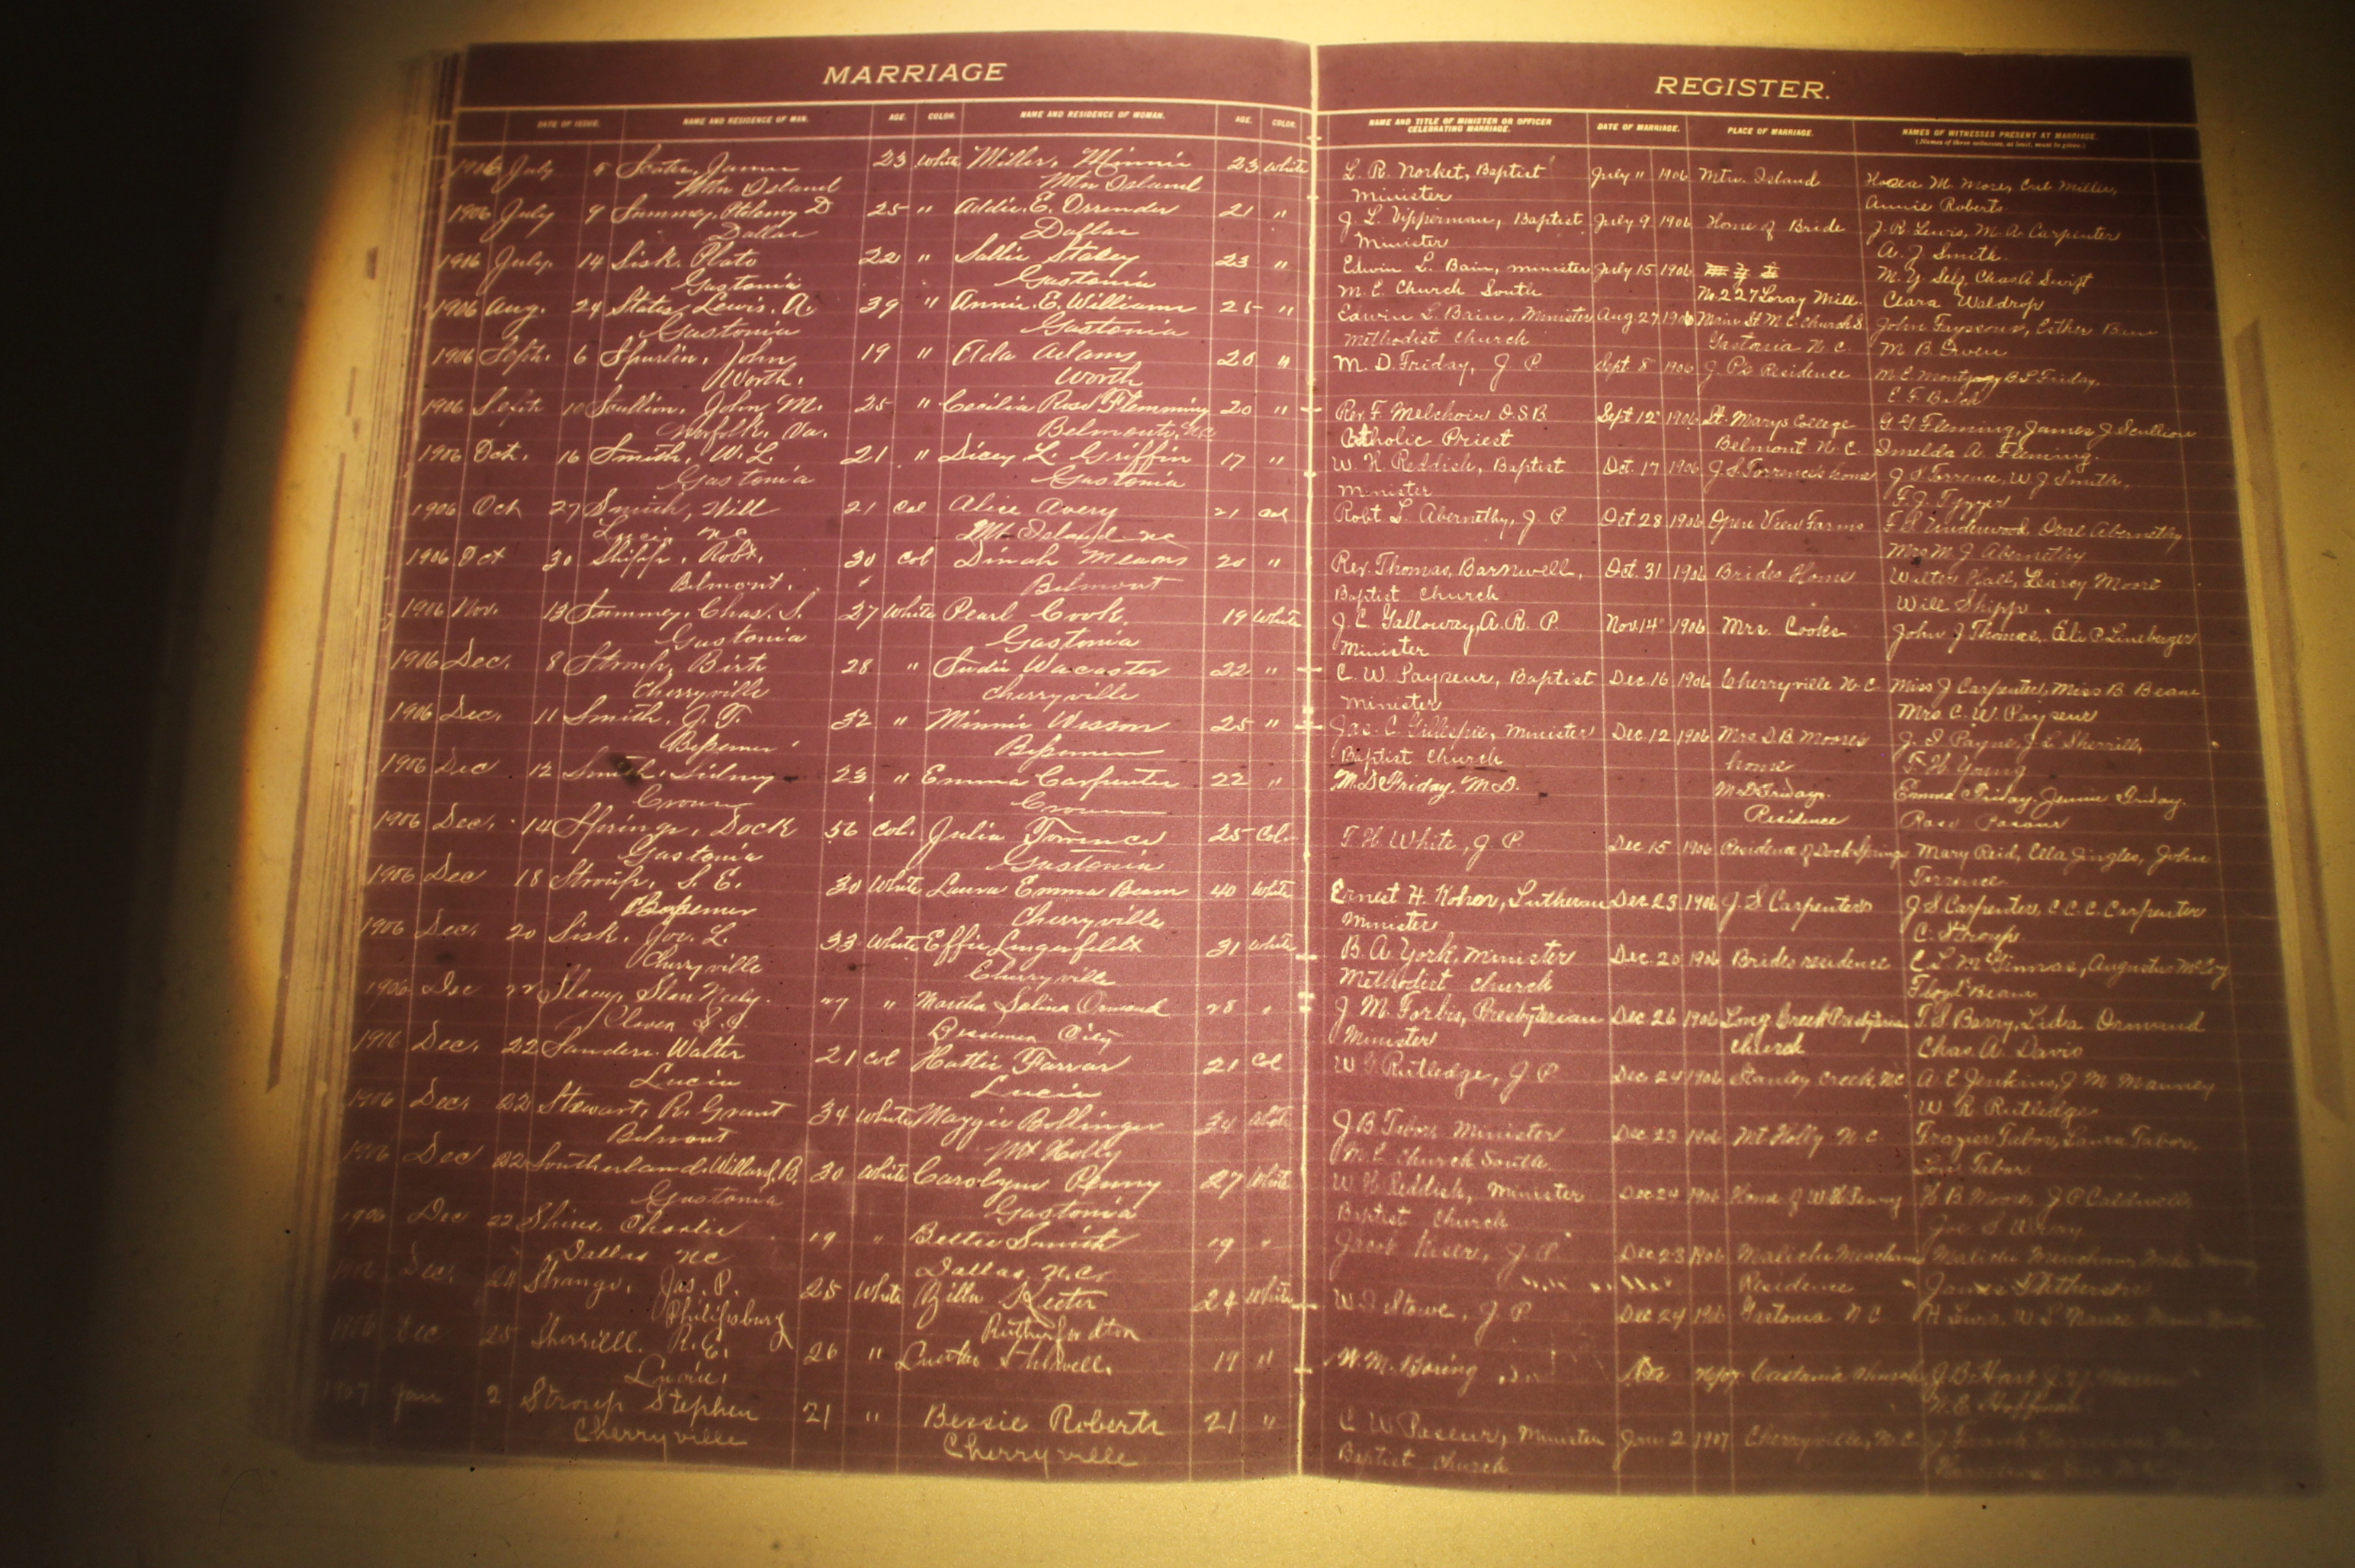 MARRIAGE
REGISTER.
DATE OF ISSUE. NAME AND RESIDENCE OF MAN. AGE. COLOR. NAME AND RESIDENCE OF WOMAN. AGE. COLOR.
NAME AND TITLE OF MINISTER OR OFFICER CELEBRATING MARRIAGE. DATE OF MARRIAGE. PLACE OF MARRIAGE. NAMES OF WITNESSES PRESENT AT MARRIAGE.
(Names of three witnesses, at least, must be given.)
1906 July 5 James 23 White Miller, Minnie 23 White L. R. Norket, Baptist July 11 1906 Mtn. Island Hosea M. Moore, Miller,
Mtn Island Mtn Island Minister Annie Roberts
1906 July 9 Summey, Ptolemy D 25 " Addie. E. Orrender 21 " J. L. Vipperman, Baptist July 9 1906 Home of Bride J. R. Lewis, M. A. Carpenter
Dallas Dallas Minister A. J. Smith.
1906 July. 14 Sisk. Plato 22 " Sallie Stacey 23 " Edwin L. Bain, minister July 15 1906 M. Y. Self, Chas A Swift
Gastonia Gastonia M. E. Church South No. 227 Loray Mill. Clara Waldrop
1906 Aug. 24 States, Lewis. A. 39 " Annie. E. Williams 25 " Edwin L. Bain, Minister Aug 27 1906 Main St. M. E. Church S. John Fayssoux, Esther
Gastonia Gastonia Methodist Church Gastonia N. C. M B. Owen
1906 Sept. 6 Spurlin, John 19 " Ada Adams 20 " M. D. Friday, J P. Sept. 8 1906 J. P's Residence M. E. B S Friday,
Worth. Worth E F
1906 Sept 10 Scullion. John M. 25 " Cecilia Rose Flemming 20 " Rev. F. Melchoir O. S. B Sept 12 1906 St. Marys College G Y Fleming, James J Scullion
Norfolk. Va. Belmont, NC Catholic Priest Belmont N. C. Imelda A. Fleming.
1906 Oct. 16 Smith, W. L. 21 " Dicey L. Griffin 17 " W. H. Reddish, Baptist Oct. 17 1906 J. S. Torrence's home J. S. Torrence, W. J Smith,
Gastonia Gastonia Minister
1906 Oct 27 Smith, Will 21 Col Alice Avery 21 Col Robt L. Abernethy, J. P. Oct. 28 1906 Open View Farms Underwood, Oral Abernethy
Lucia NC Mt Island NC Mrs M J Abernethy
1906 Oct 30 Shipp, Robt. 30 Col Dinah Means 20 " Rev. Thomas, Barnwell, Oct. 31 1906 Brides Home Walter Hall, Learcy Moore
Belmont. Belmont Baptist Church Will Shipp.
1906 Nov. 13 Summey, Chas. S. 27 White Pearl Cook. 19 White J. C. Galloway, A. R. P. Nov. 14 1906 Mrs. Cooks John J Thomas, Eli P Lineberger
Gastonia Gastonia Minister
1906 Dec. 8 Stroup, Birk 28 " Sudie Wacaster 22 " C. W. Payseur, Baptist Dec. 16 1906 Cherryville N. C. Miss J Carpenter, Miss B. Beam
Cherryville Cherryville Minister Mrs. C. W. Payseur
1906 Dec. 11 Smith, J. T. 32 " Minnie Wesson 25 " Jas. C. Gillespie, Minister Dec. 12 1906 Mrs D. B. Moore's J. I Payne, J. L Sherrill,
Bessemer Bessemer Baptist Church home F. H. Young
1906 Dec 12 Smith, Sidney 23 " Emma Carpenter 22 " M. D Friday, M. D. M. D Fridays. Emma Friday, Jennie Friday.
Residence Rose Pasour
1906 Dec. 14 Springs, Dock 56 Col. Julia Torrence 25 Col. T. H White, J P. Dec 15 1906 Residence of Dock Springs Mary Reid, Ella Jingles, John
Gastonia Gastonia Torrence
1906 Dec 18 Stroup, S. E. 30 White Laura Emma Beam 40 White Ernest H. Kohn, Lutheran Dec. 23 1906 J. S Carpenters J. S Carpenter, C. C. C. Carpenter
Bessemer Cherryville Minister C. Stroup
1906 Dec. 20 Sisk. L. 33 White Effie Lingerfeldt 31 White B. A York, Minister Dec. 20 1906 Brides residence Augustus McCoy
Cherryville Cherryville Methodist Church Floyd Beam
1906 Dec 22 Stacy, Neely. 27 " Martha Salina Ormand 28 " J M. Forbis, Presbyterian Dec 26 1906 Long Creek Presbyterian T. S Berry, Lida Ormand
Clover S. C. Bessemer City Minister church Chas. A. Davis
1906 Dec. 22 Sanders. Walter 21 Col Hattie Farrar 21 Col W. Rutledge, J P Dec. 24 1906 Stanley Creek, NC A. E Jenkins, J M Mauney
Lucia Lucia W R Rutledge
1906 Dec. 22 Stewart, R. Grant 34 White Maggie Bollinger 34 White J B Tabor Minister Dec 23 1906 Mt Holly N C. Frazier Tabor, Laura Tabor,
Belmont Mt Holly M. E Church South Tabor
1906 Dec 22 Southerland, Willard. B. 30 White Carolyn Penny 27 White W H Reddish, Minister Dec. 24 1906 Home of W H Penny H B. Moore, J P Caldwell
Gastonia Gastonia Baptist Church Joe S Wray
1906 Dec 22 Shives, Charlie 19 " Bettie Smith 19 " Jacob Kiser, J. P. Dec 23 1906
Dallas NC Dallas, N. C. Residence
1906 Dec. 24 Strange, Jas. P. 25 White Zilla Keeter 24 White W. I Stowe, J P Dec 24 1906 Gastonia N C H Lewis, W L Nance
Philipsburg Rutherfordton
1906 Dec 25 Sherrill. R. E. 26 " 19 " W. M. Boring Castania Church J. B. Hart
Lucia N. E Hoffman
1907 Jan 2 Stroup Stephen 21 " Bessie Roberts 21 " C W Paseur, Minister Jan 2 1907 Cherryville, N. C.
Cherryville Cherryville Baptist Church